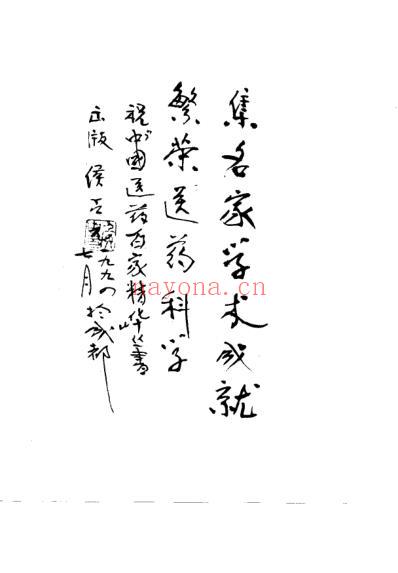 集名家学术成就
繁荣医药科学
祝中國医药百家精华丛書
出版 侯占元 一九九一
七月於成都
nayona.cn